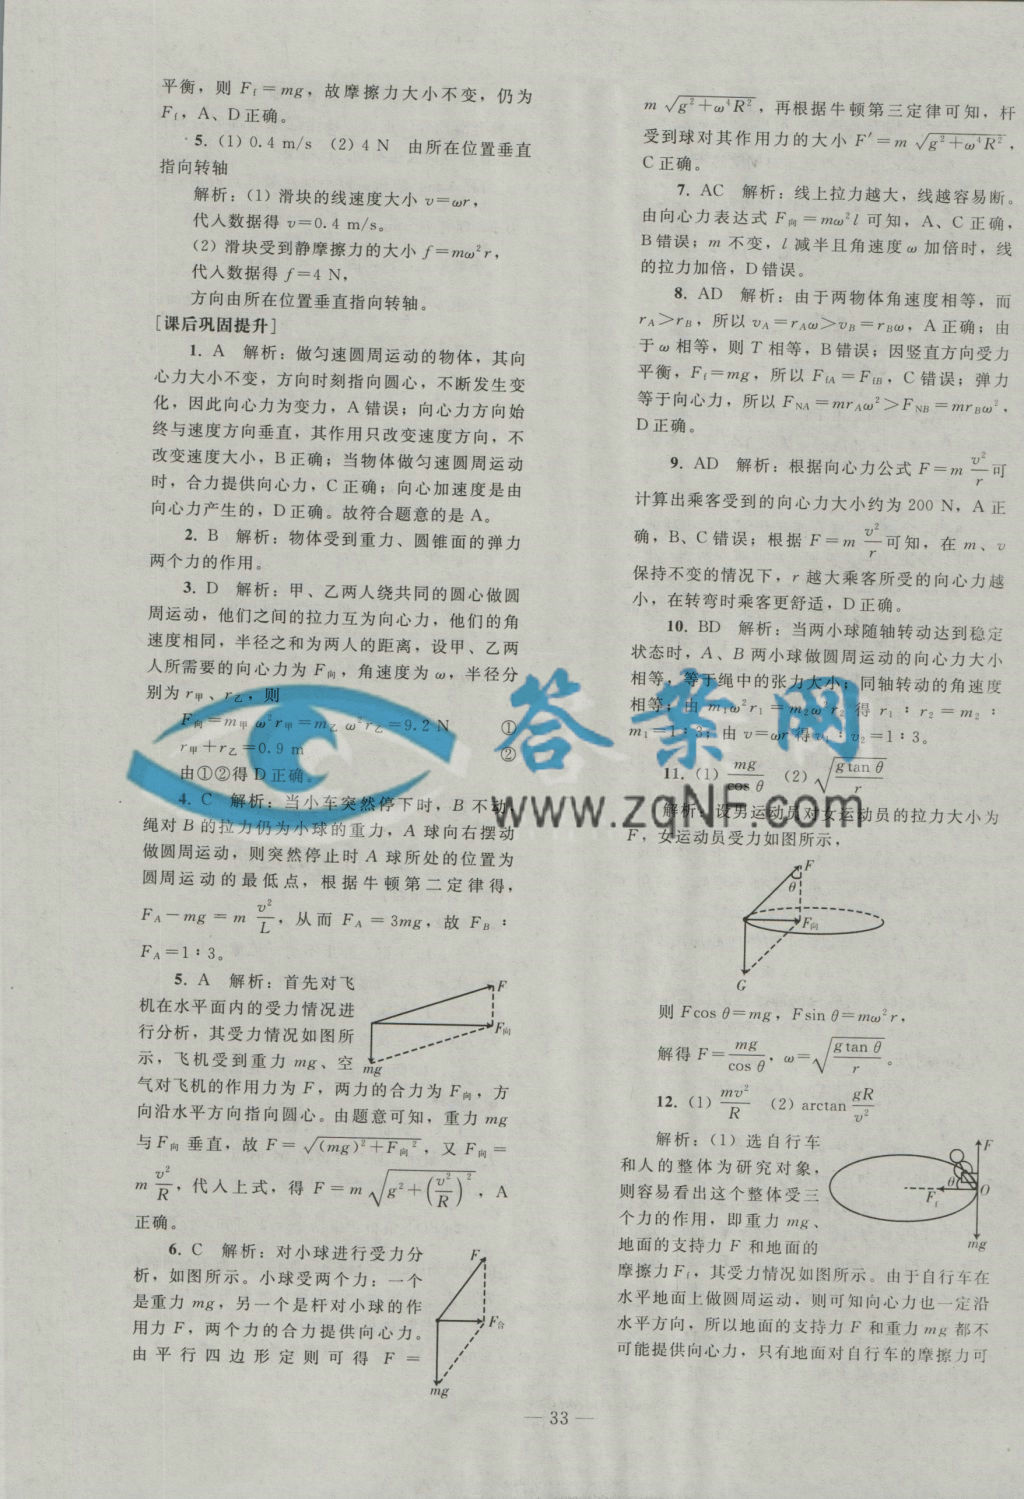 平衡，则 Ff＝mg，故摩擦力大小不变，仍为
Ff，A、D正确。
5. (1)0.4 m/s (2)4 N 由所在位置垂直
指向转轴
解析：(1)滑块的线速度大小 v＝ωr，
代入数据得 v＝0.4 m/s。
(2)滑块受到静摩擦力的大小 f＝mω²r，
代入数据得 f＝4 N，
方向由所在位置垂直指向转轴。
[课后巩固提升]
1. A 解析：做匀速圆周运动的物体，其向
心力大小不变，方向时刻指向圆心，不断发生变
化，因此向心力为变力，A错误；向心力方向始
终与速度方向垂直，其作用只改变速度方向，不
改变速度大小，B正确；当物体做匀速圆周运动
时，合力提供向心力，C正确；向心加速度是由
向心力产生的，D正确。故符合题意的是A。
2. B 解析：物体受到重力、圆锥面的弹力
两个力的作用。
3. D 解析：甲、乙两人绕共同的圆心做圆
周运动，他们之间的拉力互为向心力，他们的角
速度相同，半径之和为两人的距离，设甲、乙两
人所需要的向心力为F向，角速度为ω，半径分
别为r甲、r乙，则
F向＝m甲ω²r甲＝m乙ω²r乙＝9.2 N ①
r甲＋r乙＝0.9 m ②
由①②得D正确。
4. C 解析：当小车突然停下时，B不动，
绳对B的拉力仍为小球的重力，A球向右摆动
做圆周运动，则突然停止时A球所处的位置为
圆周运动的最低点，根据牛顿第二定律得，
FA－mg＝m v²/L，从而 FA＝3mg，故 FB：
FA＝1：3。
5. A 解析：首先对飞
机在水平面内的受力情况进
行分析，其受力情况如图所
示，飞机受到重力 mg、空
气对飞机的作用力为F，两力的合力为F向，方
向沿水平方向指向圆心。由题意可知，重力 mg
与F向垂直，故 F＝√((mg)²＋F向²)，又 F向＝
m v²/R，代入上式，得 F＝m√(g²＋(v²/R)²)，A
正确。
F
F向
mg
6. C 解析：对小球进行受力分
析，如图所示。小球受两个力：一个
是重力 mg，另一个是杆对小球的作
用力F，两个力的合力提供向心力。
由平行四边形定则可得 F＝
F
F合
mg
m√(g²＋ω⁴R²)，再根据牛顿第三定律可知，杆
受到球对其作用力的大小 F′＝m√(g²＋ω⁴R²)，
C正确。
7. AC 解析：线上拉力越大，线越容易断。
由向心力表达式 F向＝mω²l 可知，A、C正确，
B错误；m 不变，l 减半且角速度ω加倍时，线
的拉力加倍，D错误。
8. AD 解析：由于两物体角速度相等，而
rA＞rB，所以 vA＝rAω＞vB＝rBω，A正确；由
于ω相等，则 T 相等，B错误；因竖直方向受力
平衡，Ff＝mg，所以 FfA＝FfB，C错误；弹力
等于向心力，所以 FNA＝mrAω²＞FNB＝mrBω²，
D正确。
9. AD 解析：根据向心力公式 F＝m v²/r 可
计算出乘客受到的向心力大小约为200 N，A正
确，B、C错误；根据 F＝m v²/r 可知，在 m、v
保持不变的情况下，r 越大乘客所受的向心力越
小，在转弯时乘客更舒适，D正确。
10. BD 解析：当两小球随轴转动达到稳定
状态时，A、B两小球做圆周运动的向心力大小
相等，等于绳中的张力大小；同轴转动的角速度
相等；由 m₁ω²r₁＝m₂ω²r₂ 得 r₁：r₂＝m₂：
m₁＝1：3；由 v＝ωr得v₁：v₂＝1：3。
11. (1) mg/cos θ (2) √(g tan θ/r)
解析：设男运动员对女运动员的拉力大小为
F，女运动员受力如图所示，
F
θ
F向
G
则 Fcos θ＝mg，Fsin θ＝mω²r，
解得 F＝mg/cos θ，ω＝√(g tan θ/r)。
12. (1) mv²/R (2) arctan gR/v²
解析：(1)选自行车
和人的整体为研究对象，
则容易看出这个整体受三
个力的作用，即重力 mg、
地面的支持力 F 和地面的
摩擦力Ff，其受力情况如图所示。由于自行车在
水平地面上做圆周运动，则可知向心力也一定沿
水平方向，所以地面的支持力 F 和重力 mg 都不
可能提供向心力，只有地面对自行车的摩擦力可
F
θ
Ff
O
mg
答案网
www.zqNF.com
— 33 —